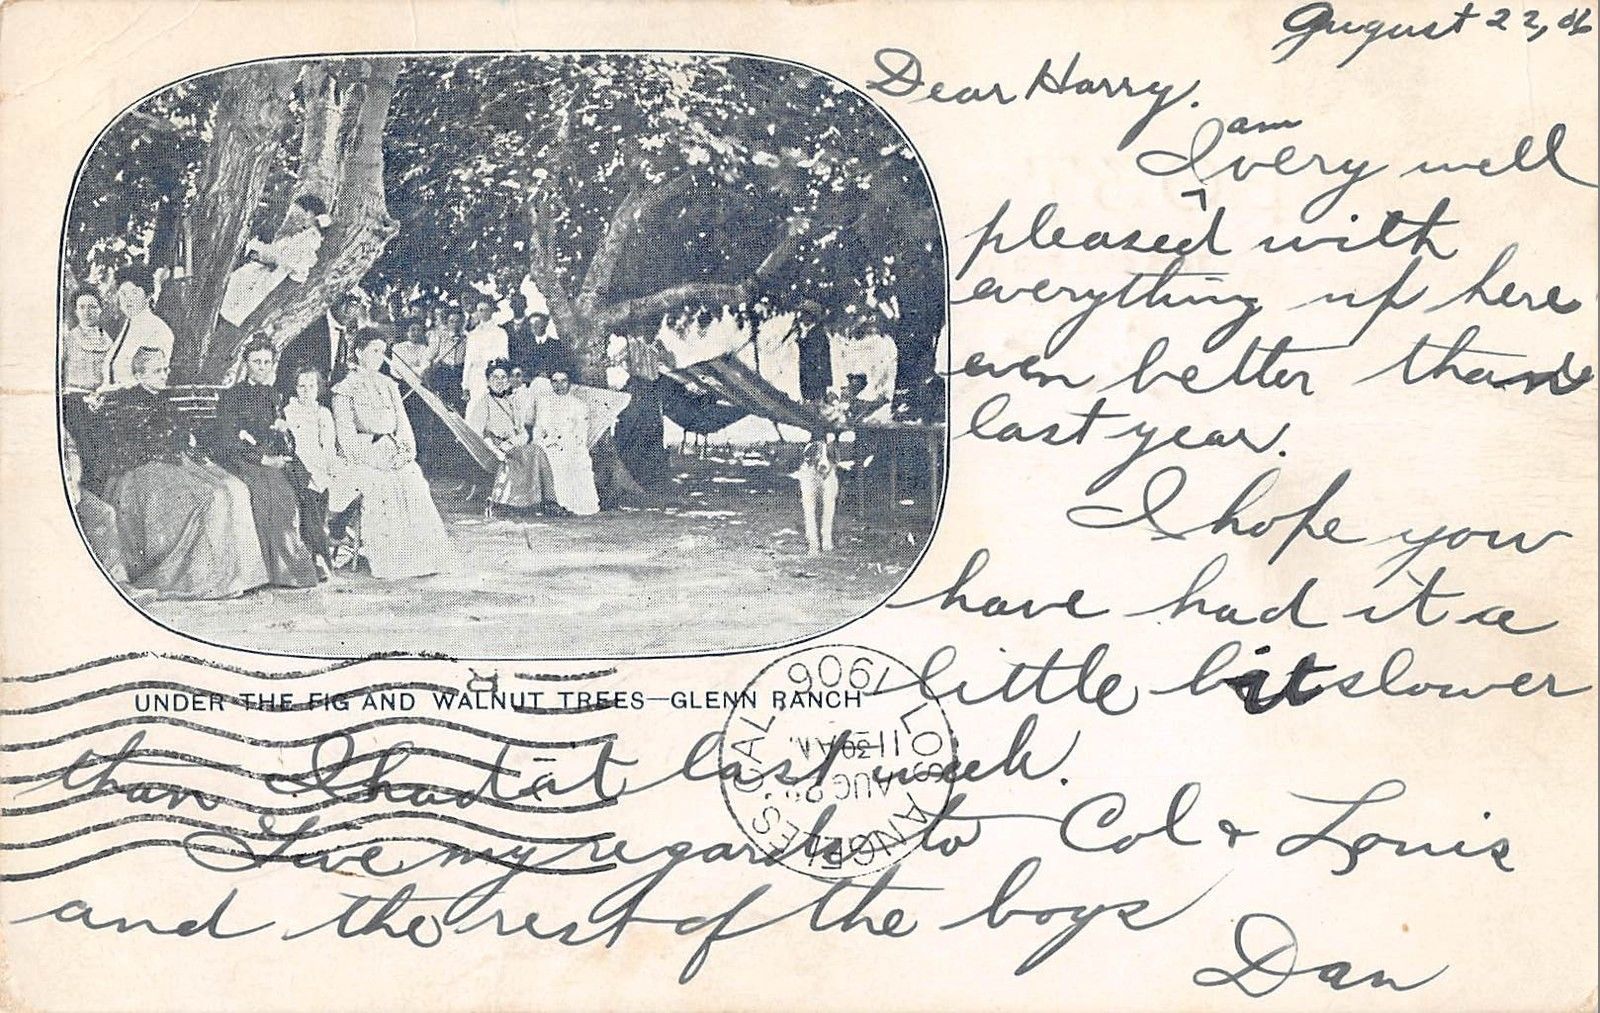 August 22, 06
Dear Harry.
I am very well
pleased with
everything up here
even better than
last year.
I hope you
have had it a
little bit slower
than I had it last week.
Give my regards to Col & Louis
and the rest of the boys
Dan
UNDER THE FIG AND WALNUT TREES—GLENN RANCH
LOS ANGELES, CAL.
AUG
11-30 AM
1906